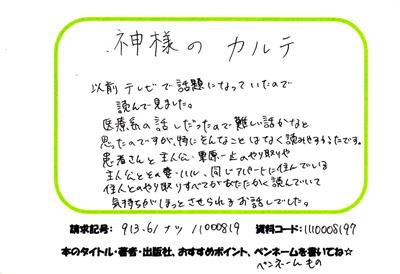 神様のカルテ
以前テレビで話題になっていたので
読んで見ました。
医療系の話しだったので難しい話かなと
思ったのですが、特にそんなことはなく読みやすかったです。
患者さんと主人公・栗原一止のやり取りや
主人公とその妻・ハル、同じアパートに住んでいる
住人とのやり取りすべてがあたたかく読んでいて
気持ちがほっとさせられるお話しでした。
請求記号: 913.6/ナツ/1000819 資料コード:1110008197
本のタイトル・著者・出版社、おすすめポイント、ペンネームを書いてね☆
ペンネーム もの